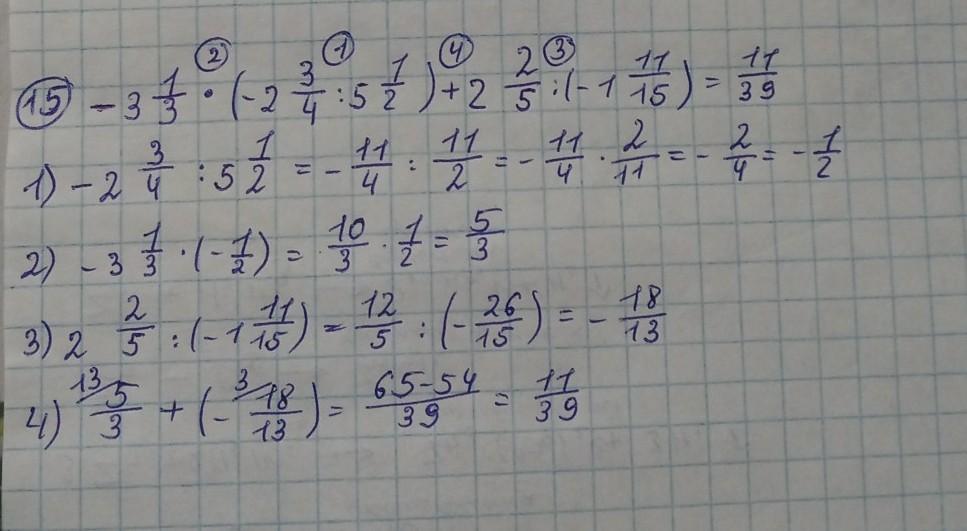 ② ① ④ ③
⑮ -3 1/3 · (-2 3/4 : 5 1/2) + 2 2/5 : (-1 11/15) = 11/39
1) -2 3/4 : 5 1/2 = - 11/4 : 11/2 = - 11/4 · 2/11 = - 2/4 = - 1/2
2) -3 1/3 · (- 1/2) = 10/3 · 1/2 = 5/3
3) 2 2/5 : (-1 11/15) = 12/5 : (- 26/15) = - 18/13
13 3
4) 5/3 + (- 18/13) = 65-54/39 = 11/39